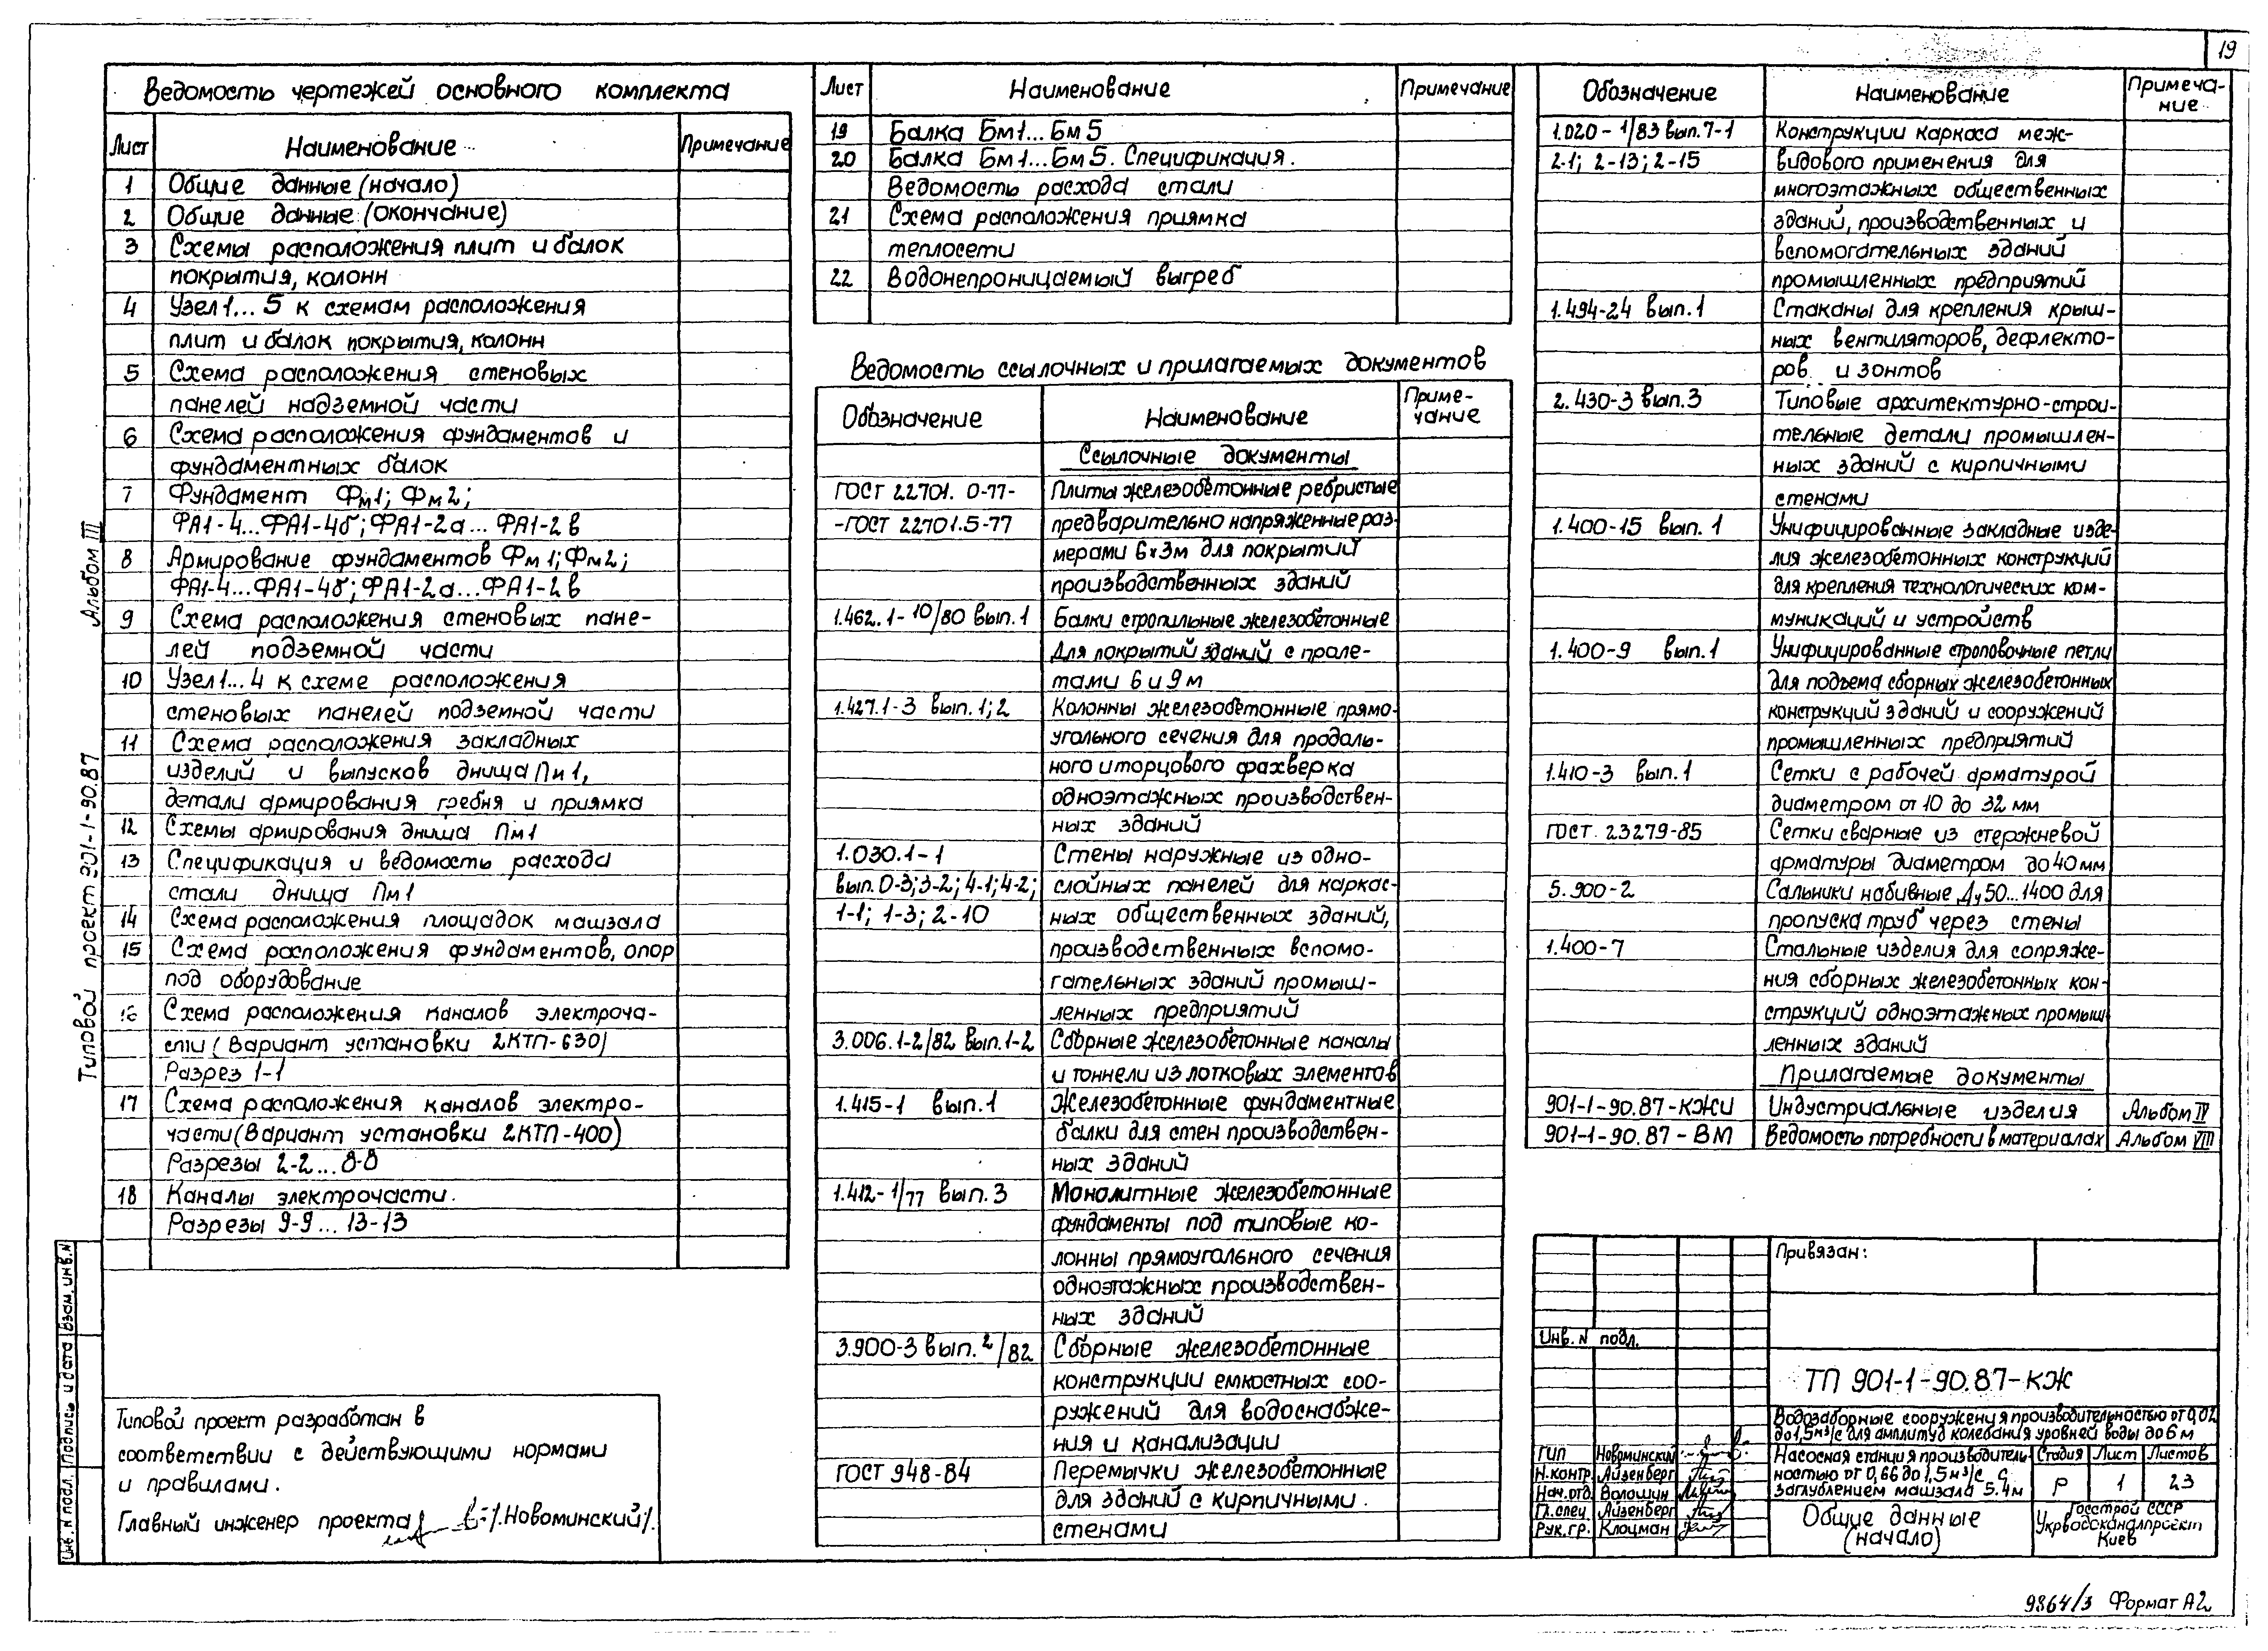 19
Ведомость чертежей основного комплекта
Лист Наименование Примечание
1 Общие данные (начало)
2 Общие данные (окончание)
3 Схемы расположения плит и балок
покрытия, колонн
4 Узел 1...5 к схемам расположения
плит и балок покрытия, колонн
5 Схема расположения стеновых
панелей надземной части
6 Схема расположения фундаментов и
фундаментных балок
7 Фундамент Фм1; Фм2;
ФА1-4...ФА1-4б; ФА1-2а...ФА1-2в
8 Армирование фундаментов Фм1; Фм2;
ФА1-4...ФА1-4б; ФА1-2а...ФА1-2в
9 Схема расположения стеновых пане-
лей подземной части
10 Узел 1...4 к схеме расположения
стеновых панелей подземной части
11 Схема расположения закладных
изделий и выпусков днища Пм1,
детали армирования гребня и приямка
12 Схемы армирования днища Пм1
13 Спецификация и ведомость расхода
стали днища Пм1
14 Схема расположения площадок машзала
15 Схема расположения фундаментов, опор
под оборудование
16 Схема расположения каналов электроча-
сти (Вариант установки 2КТП-630)
Разрез 1-1
17 Схема расположения каналов электро-
части (Вариант установки 2КТП-400)
Разрезы 2-2...8-8
18 Каналы электрочасти.
Разрезы 9-9...13-13
Типовой проект разработан в
соответствии с действующими нормами
и правилами.
Главный инженер проекта /Новоминский/.
Типовой проект 901-1-90.87 Альбом III
Инв. N подл. Подпись и дата Взам. инв. N
Лист Наименование Примечание
19 Балка Бм1...Бм5
20 Балка Бм1...Бм5. Спецификация.
Ведомость расхода стали
21 Схема расположения приямка
теплосети
22 Водонепроницаемый выгреб
Ведомость ссылочных и прилагаемых документов
Обозначение Наименование Приме-
чание
Ссылочные документы
ГОСТ 22701. 0-77- Плиты железобетонные ребристые
-ГОСТ 22701.5-77 предварительно напряженные раз-
мерами 6х3м для покрытий
производственных зданий
1.462.1-10/80 вып.1 Балки стропильные железобетонные
Для покрытий зданий с проле-
тами 6 и 9 м
1.427.1-3 вып. 1;2 Колонны железобетонные прямо-
угольного сечения для продоль-
ного и торцового фахверка
одноэтажных производствен-
ных зданий
1.030.1-1 Стены наружные из одно-
вып. 0-3; 3-2; 4-1; 4-2; слойных панелей для каркас-
1-1; 1-3; 2-10 ных общественных зданий,
производственных вспомо-
гательных зданий промыш-
ленных предприятий
3.006.1-2/82 вып.1-2 Сборные железобетонные каналы
и тоннели из лотковых элементов
1.415-1 вып.1 Железобетонные фундаментные
балки для стен производствен-
ных зданий
1.412-1/77 вып.3 Монолитные железобетонные
фундаменты под типовые ко-
лонны прямоугольного сечения
одноэтажных производствен-
ных зданий
3.900-3 вып. 2/82 Сборные железобетонные
конструкции емкостных соо-
ружений для водоснабже-
ния и канализации
ГОСТ 948-84 Перемычки железобетонные
для зданий с кирпичными
стенами
Обозначение Наименование Примеча-
ние
1.020-1/83 вып.7-1 Конструкции каркаса меж-
2-1; 2-13; 2-15 видового применения для
многоэтажных общественных
зданий, производственных и
вспомогательных зданий
промышленных предприятий
1.494-24 вып.1 Стаканы для крепления крыш-
ных вентиляторов, дефлекто-
ров и зонтов
2.430-3 вып.3 Типовые архитектурно-строи-
тельные детали промышлен-
ных зданий с кирпичными
стенами
1.400-15 вып. 1 Унифицированные закладные изде-
лия железобетонных конструкций
для крепления технологических ком-
муникаций и устройств
1.400-9 вып.1 Унифицированные строповочные петли
для подъема сборных железобетонных
конструкций зданий и сооружений
промышленных предприятий
1.410-3 вып.1 Сетки с рабочей арматурой
диаметром от 10 до 32 мм
ГОСТ 23279-85 Сетки сварные из стержневой
арматуры диаметром до 40мм
5.900-2 Сальники набивные Ду50...1400 для
пропуска труб через стены
1.400-7 Стальные изделия для сопряже-
ния сборных железобетонных кон-
струкций одноэтажных промыш-
ленных зданий
Прилагаемые документы
901-1-90.87-КЖИ Индустриальные изделия Альбом IV
901-1-90.87-ВМ Ведомость потребности в материалах Альбом VIII
Привязан:
Инв. N подл.
ТП 901-1-90.87-КЖ
Водозаборные сооружения производительностью от 0,02
до 1,5м³/с для амплитуд колебания уровней воды до 6 м
ГИП Новоминский
Н.контр. Айзенберг
Нач.отд. Волошин
Гл.спец. Айзенберг
Рук.гр. Клоцман
Насосная станция производитель-
ностью от 0,66 до 1,5м³/с с
заглублением машзала 5.4м
Стадия Лист Листов
Р 1 23
Общие данные
(начало)
Госстрой СССР
Укрводоканалпроект
Киев
9864/3 Формат А2